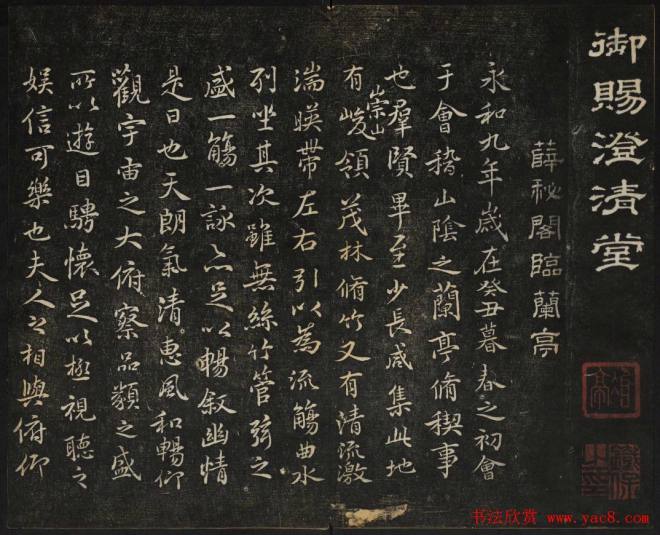 御賜澄清堂
薛秘閣臨蘭亭
永和九年歲在癸丑暮春之初會
于會稽山陰之蘭亭脩稧事
也羣賢畢至少長咸集此地
有崇山峻領茂林脩竹又有清流激
湍暎帶左右引以為流觴曲水
列坐其次雖無絲竹管弦之
盛一觴一詠亦足以暢敘幽情
是日也天朗氣清惠風和暢仰
觀宇宙之大俯察品類之盛
所以遊目騁懷足以極視聽之
娛信可樂也夫人之相與俯仰
书法欣赏 www.yac8.com